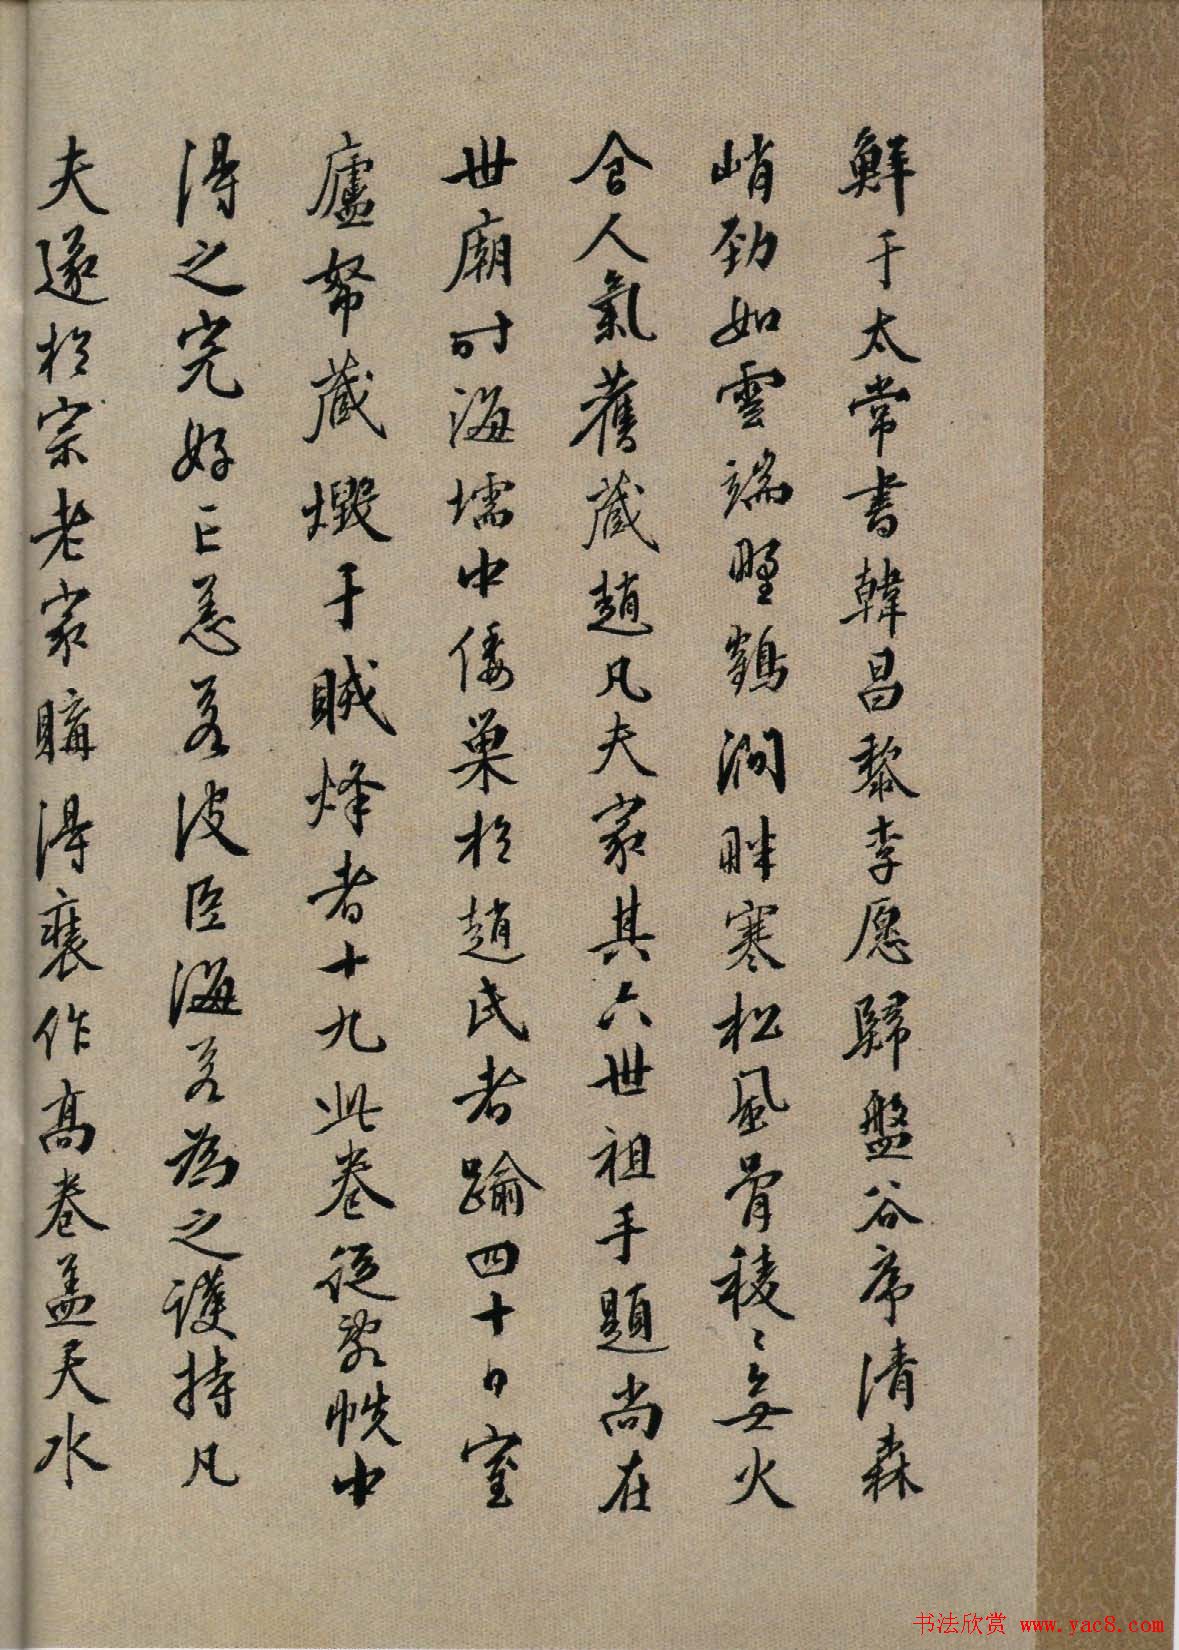 鮮于太常書韓昌黎李愿歸盤谷序清森
峭勁如雲端野鶴澗畔寒松風骨稜〻無火
食人氣舊藏趙凡夫家其六世祖手題尚在
世廟时海壖中倭巢於趙氏者踰四十日室
廬帑藏燬于賊烽者十九此卷從敝帙中
得之完好亡恙若波臣海若為之護持凡
夫遂於宗老家購得裝作高卷盖天水
书法欣赏 www.yac8.com